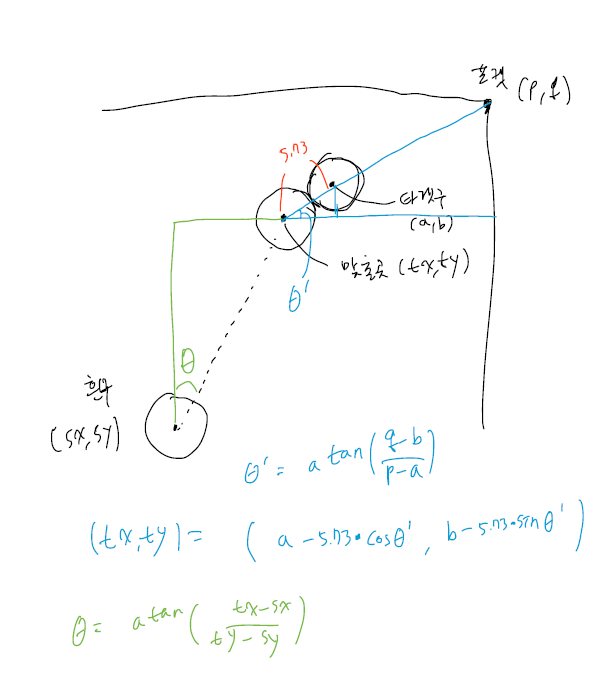 포켓 (P, q)
5.73
타겟구
(a,b)
맞출곳 (tx,ty)
θ'
θ
흰구
(sx,sy)
θ' = atan(q-b/p-a)
(tx,ty) = ( a-5.73•cosθ' , b-5.73•sinθ' )
θ = atan(tx-sx/ty-sy)